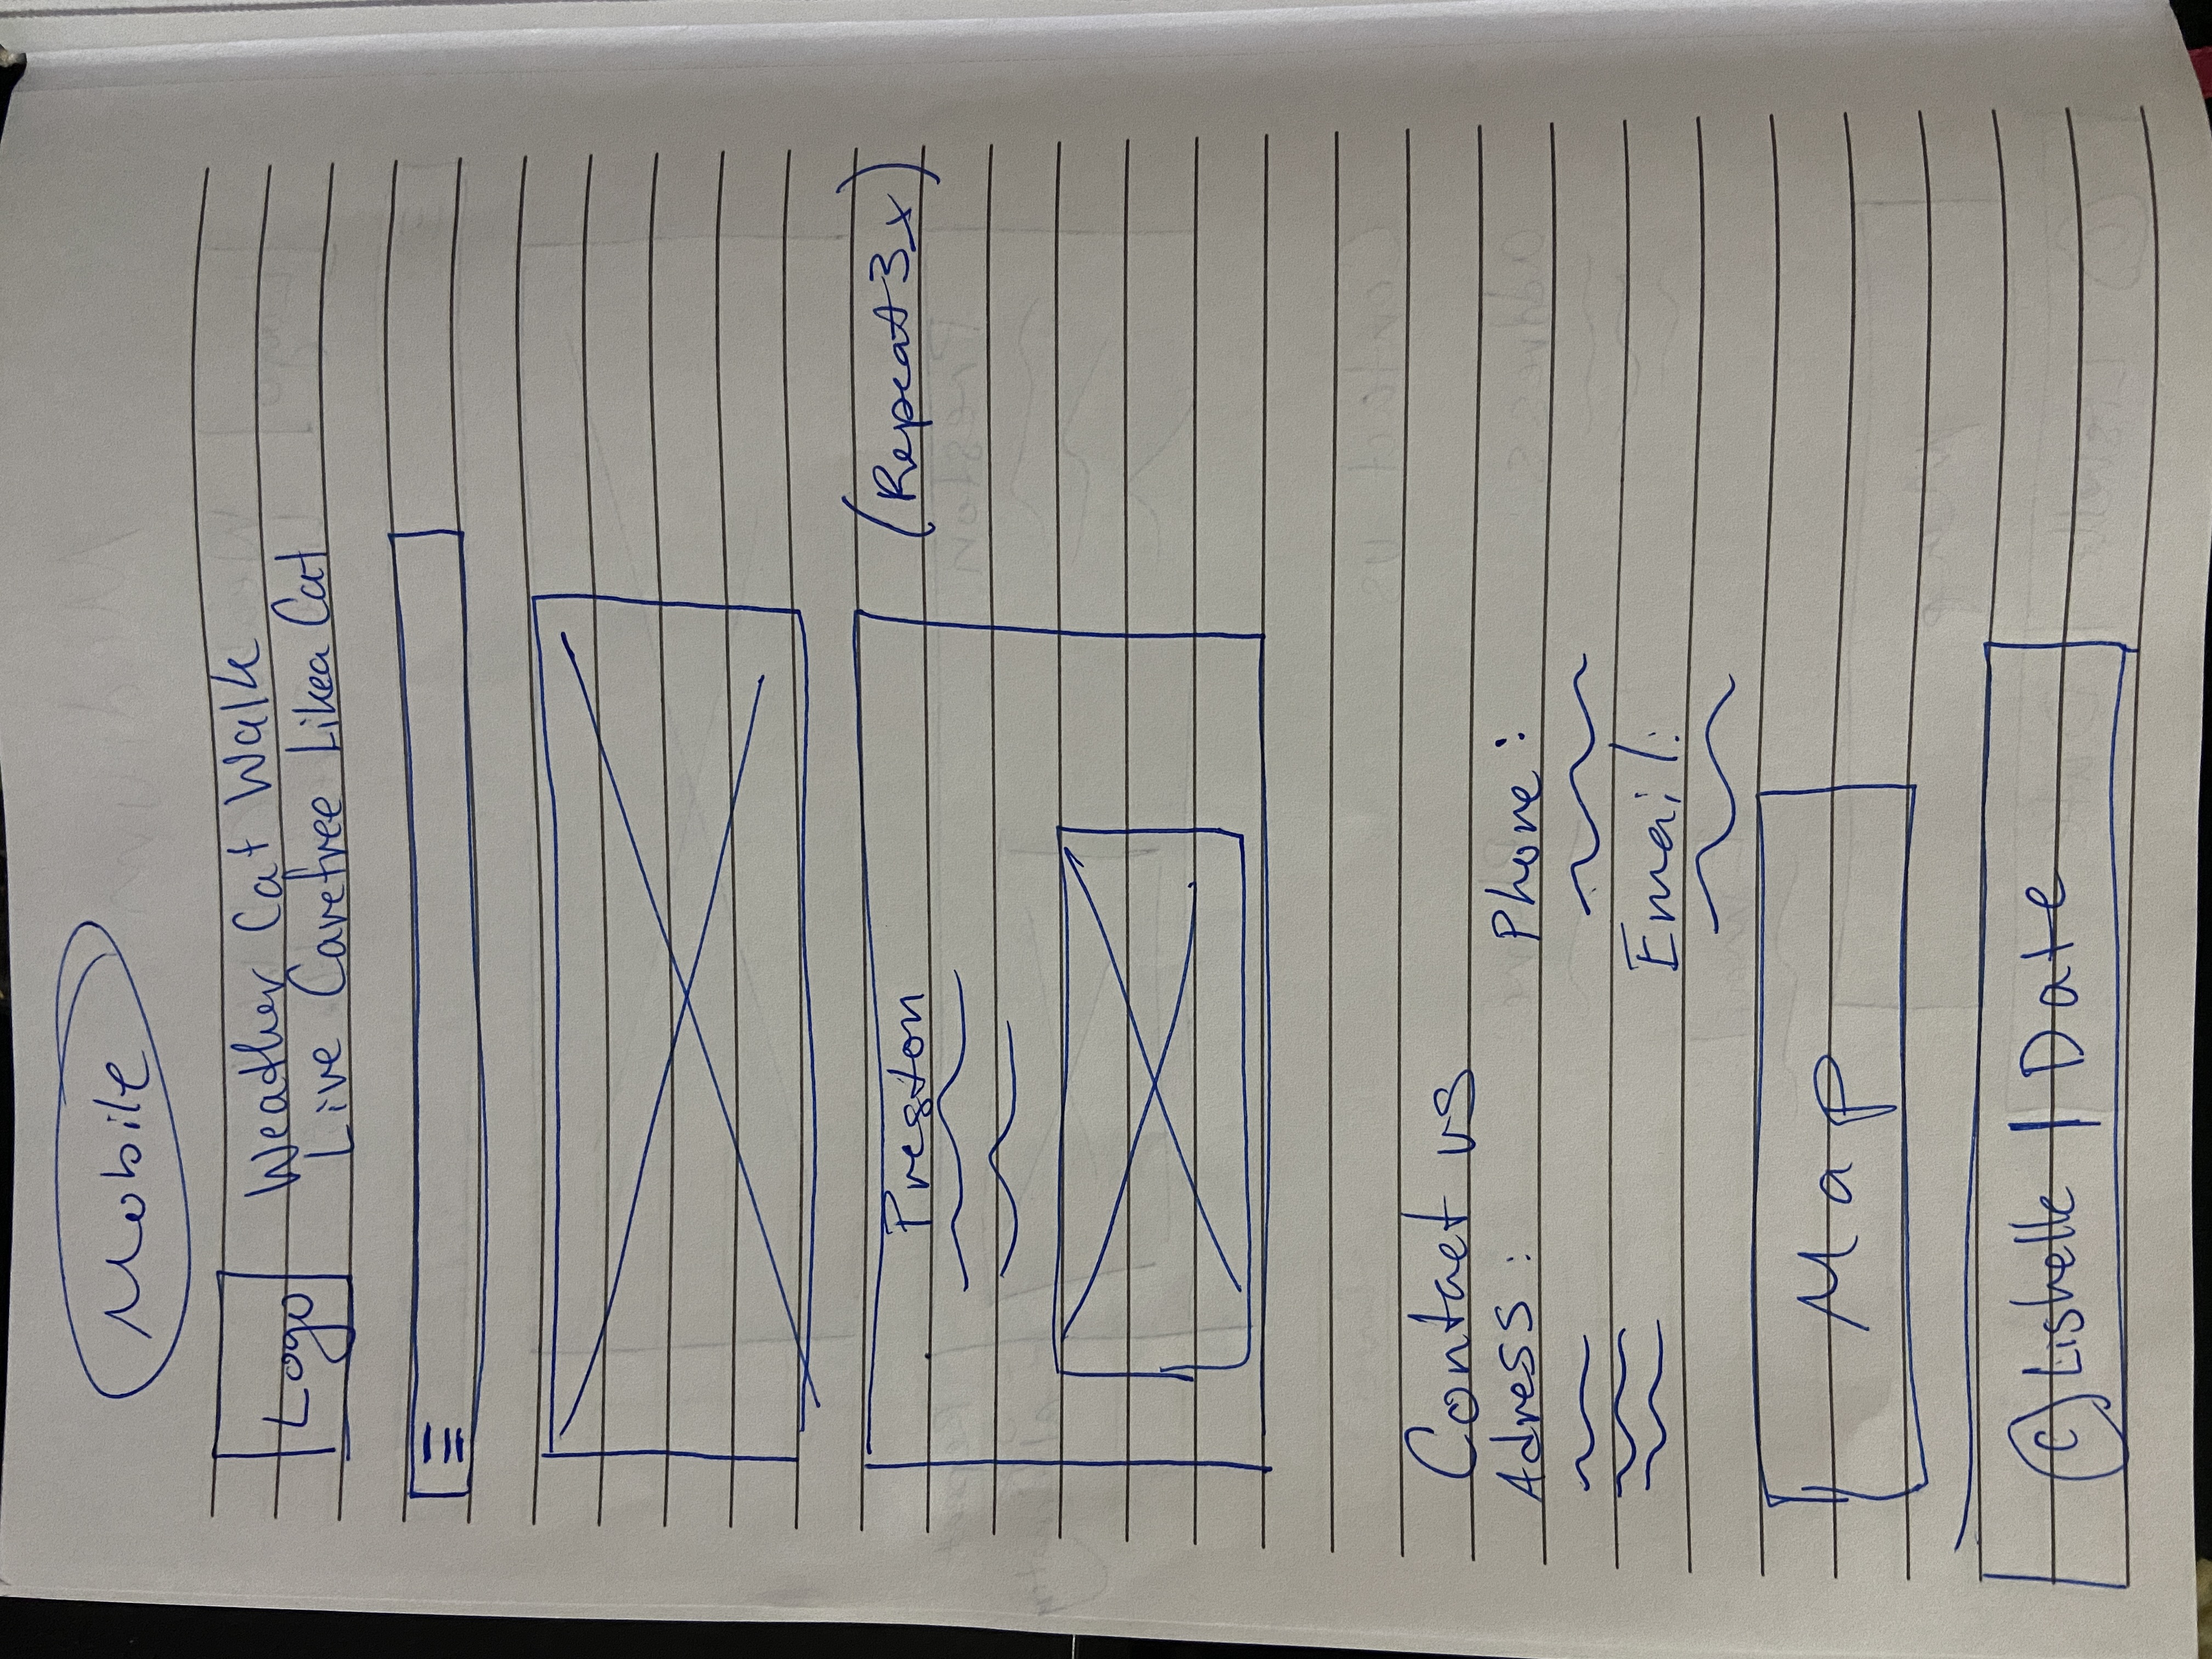 Mobile
Logo
Weather Cat Walk
Live Carefree Like a Cat
Preston
(Repeat 3x)
Contact us
Adress:
Phone:
Email:
Map
© Lishelle | Date